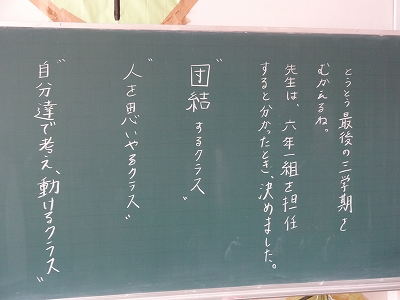 とうとう最後の三学期を
むかえるね。
先生は、六年一組を担任
すると分かったとき、決めました。
〝団結するクラス〟
〝人を思いやるクラス〟
〝自分達で考え、動けるクラス〟